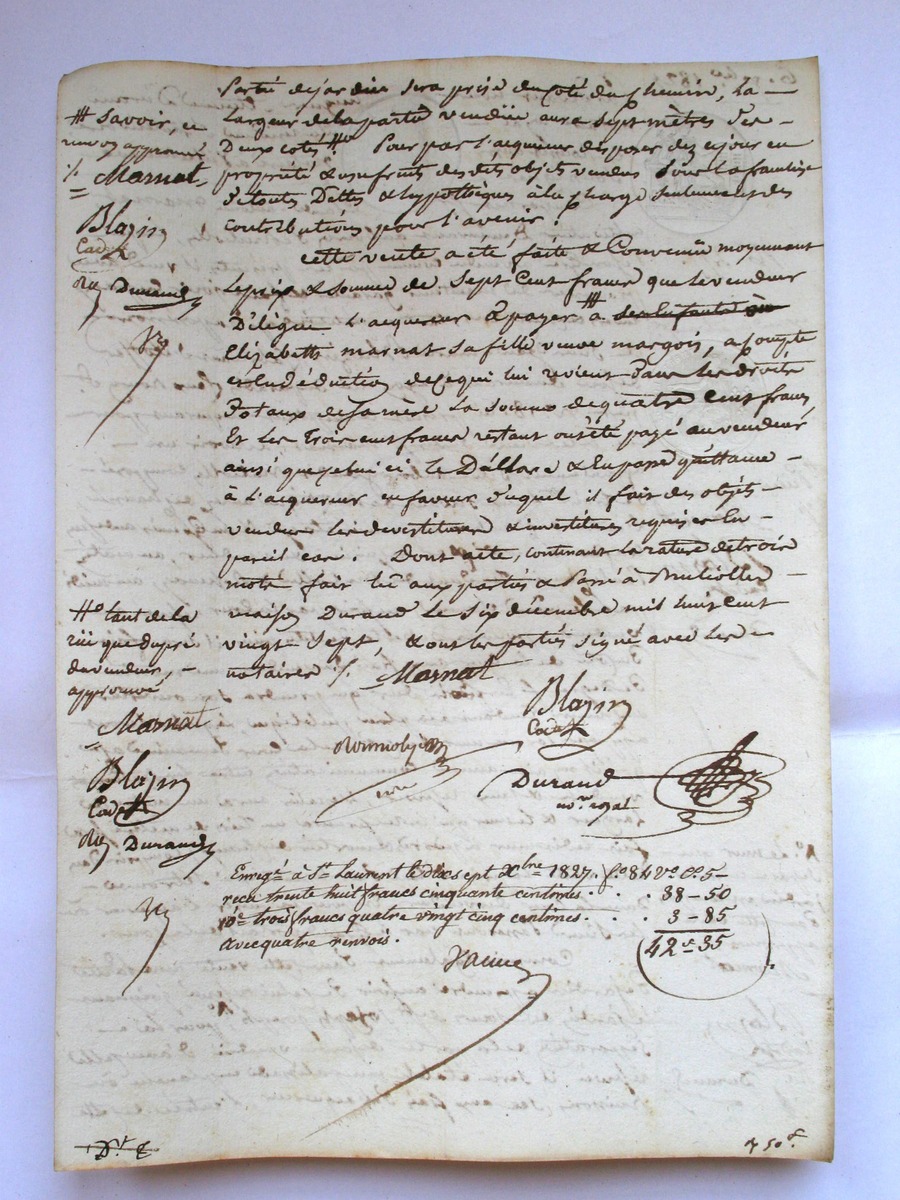 partie de jardin sera prise du côté du chemin, la
largeur de la partie vendue aura sept mètres des
Deux cotés #o Pour par l'acquereur disposer dez ejour en
propriété & usufruit desdits objets vendus sous la franchise
de toutes Dettes & hypothèques à la charge seulement des
contributions pour l'avenir.
cette vente a été faite & Convenue moyennant
le prix & somme de sept Cent francs que le vendeur
Délègue l'acquereur à payer # à ses Enfants
Elizabeth marnat sa fille veuve margois, a compte
et En déduction de ce qui lui revient dans les droits
Dotaux de sa mère la somme de quatre Cent francs
Et les Trois cent francs restant ont été payé au vendeur
ainsi que celui ci le Déclare & En passe quittance
à l'acquereur en faveur duquel il fait des objets
vendus les devestitures & investitures requises En
pareil cas. Dont acte, contenant la rature de trois
mots fait lû aux parties & Passé à
maison Durand le six décembre mil huit cent
vingt sept, & ont les parties signé avec les
notaires ./. Marnat
Blazin
Cadet
Durand
nore royal
# savoir, ce
renvoy approuvé
./. Marnat
Blazin
Cadet
Durand
#o tant de la
que du pré
du vendeur,
approuvé
Marnat
Blazin
Cadet
Durand
Enregé à St Laurent le dix sept Xbre 1827. fo 84 Vo Co 5
reçu trente huit francs cinquante centimes . . 38-50
10e trois francs quatre vingt cinq centimes . . 3-85
avec quatre renvois. 42f 35
50f.